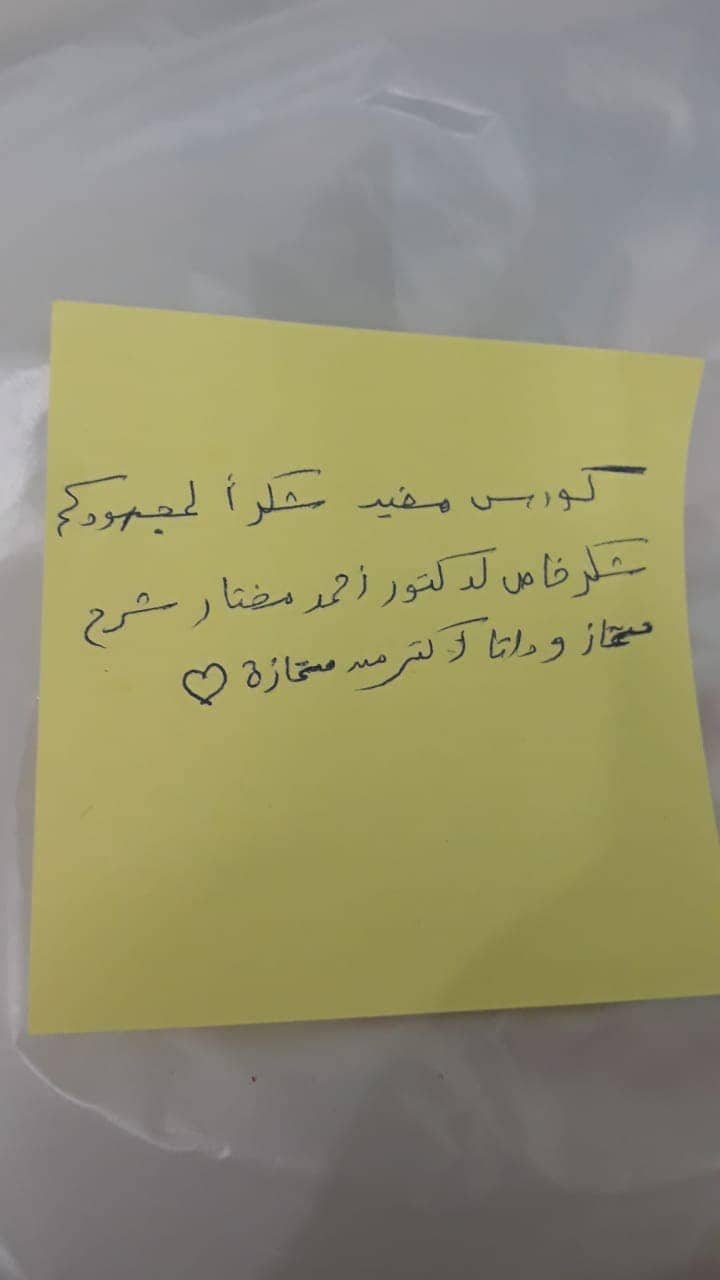 كورس مفيد شكراً لمجهودكم
شكر خاص لدكتور أحمد مختار شرح
ممتاز و داتا أكتر من ممتازة ♡